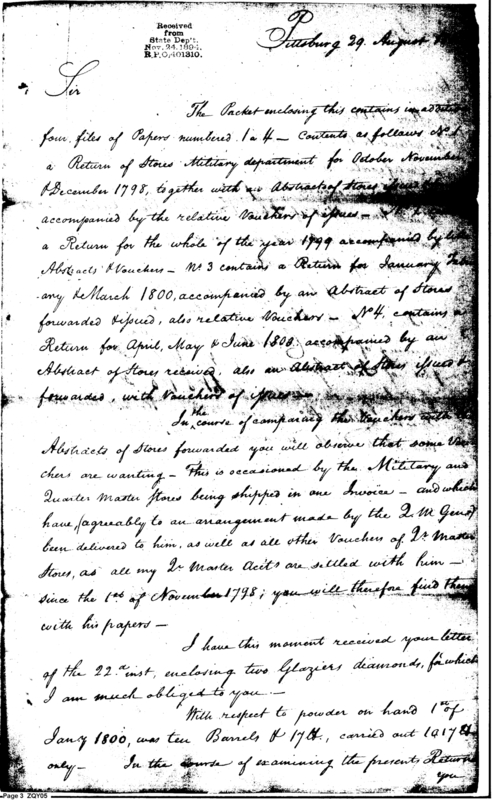 Received
from
State Dep't.
Nov. 24, 1894.
R.P.O, 401310.
Pittsburg 29. August
Sir
The Packet enclosing this contains in
four files of Papers numbered 1 a 4 — Contents as follows No. 1
a Return of Stores Military department for October November
& December 1798, together with an Abstract of Stores
accompanied by the relative Vouchers of issues —
a Return for the whole of the year 1799 accompanied by
Abstracts & Vouchers — No. 3 contains a Return for January Febru
ary & March 1800, accompanied by an Abstract of Stores
forwarded & issued, also relative Vouchers — No 4. contains a
Return for April, May & June 1800 accompanied by an
Abstract of Stores received, also an Abstract of Stores issued &
forwarded, with Vouchers of issues —
In the course of comparing the Vouchers with
Abstracts of Stores forwarded you will observe that some Vou
chers are wanting — This is occasioned by the Military and
Quarter Master Stores being shipped in one Invoice — and which
have (agreeably to an arrangement made by the Q. M. Genel
been delivered to him, as well as all other Vouchers of Qr Master
Stores, as all my Qr Master Accts are settled with him —
since the 1st of November 1798; you will therefore find them
with his papers —
I have this moment received your letter
of the 22d inst, enclosing two Glaziers diamonds, for which
I am much obliged to you —
With respect to powder on hand 1st of
Jany 1800, was ten Barrels & 17 lb, carried out 1917 lb
only — In the course of examining the present Return
you
Page 3 ZQY05